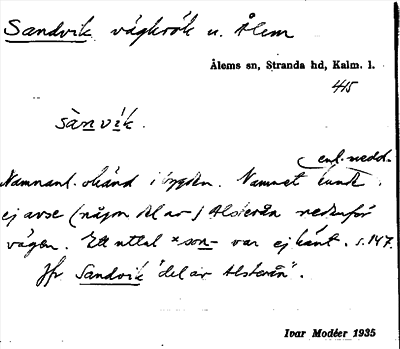 Sandvik vägkrök u. Ålem
Ålems sn, Stranda hd, Kalm. l.
445
sànvík.
enl. medd.
Namnanl. okänd i bygden. Namnet kunde
ej avse (någon del av-) Alsterån nedanför
vägen. Ett uttal *son- var ej känt. s. 147.
Jfr Sandvik "del av Alsterån".
Ivar Modéer 1935